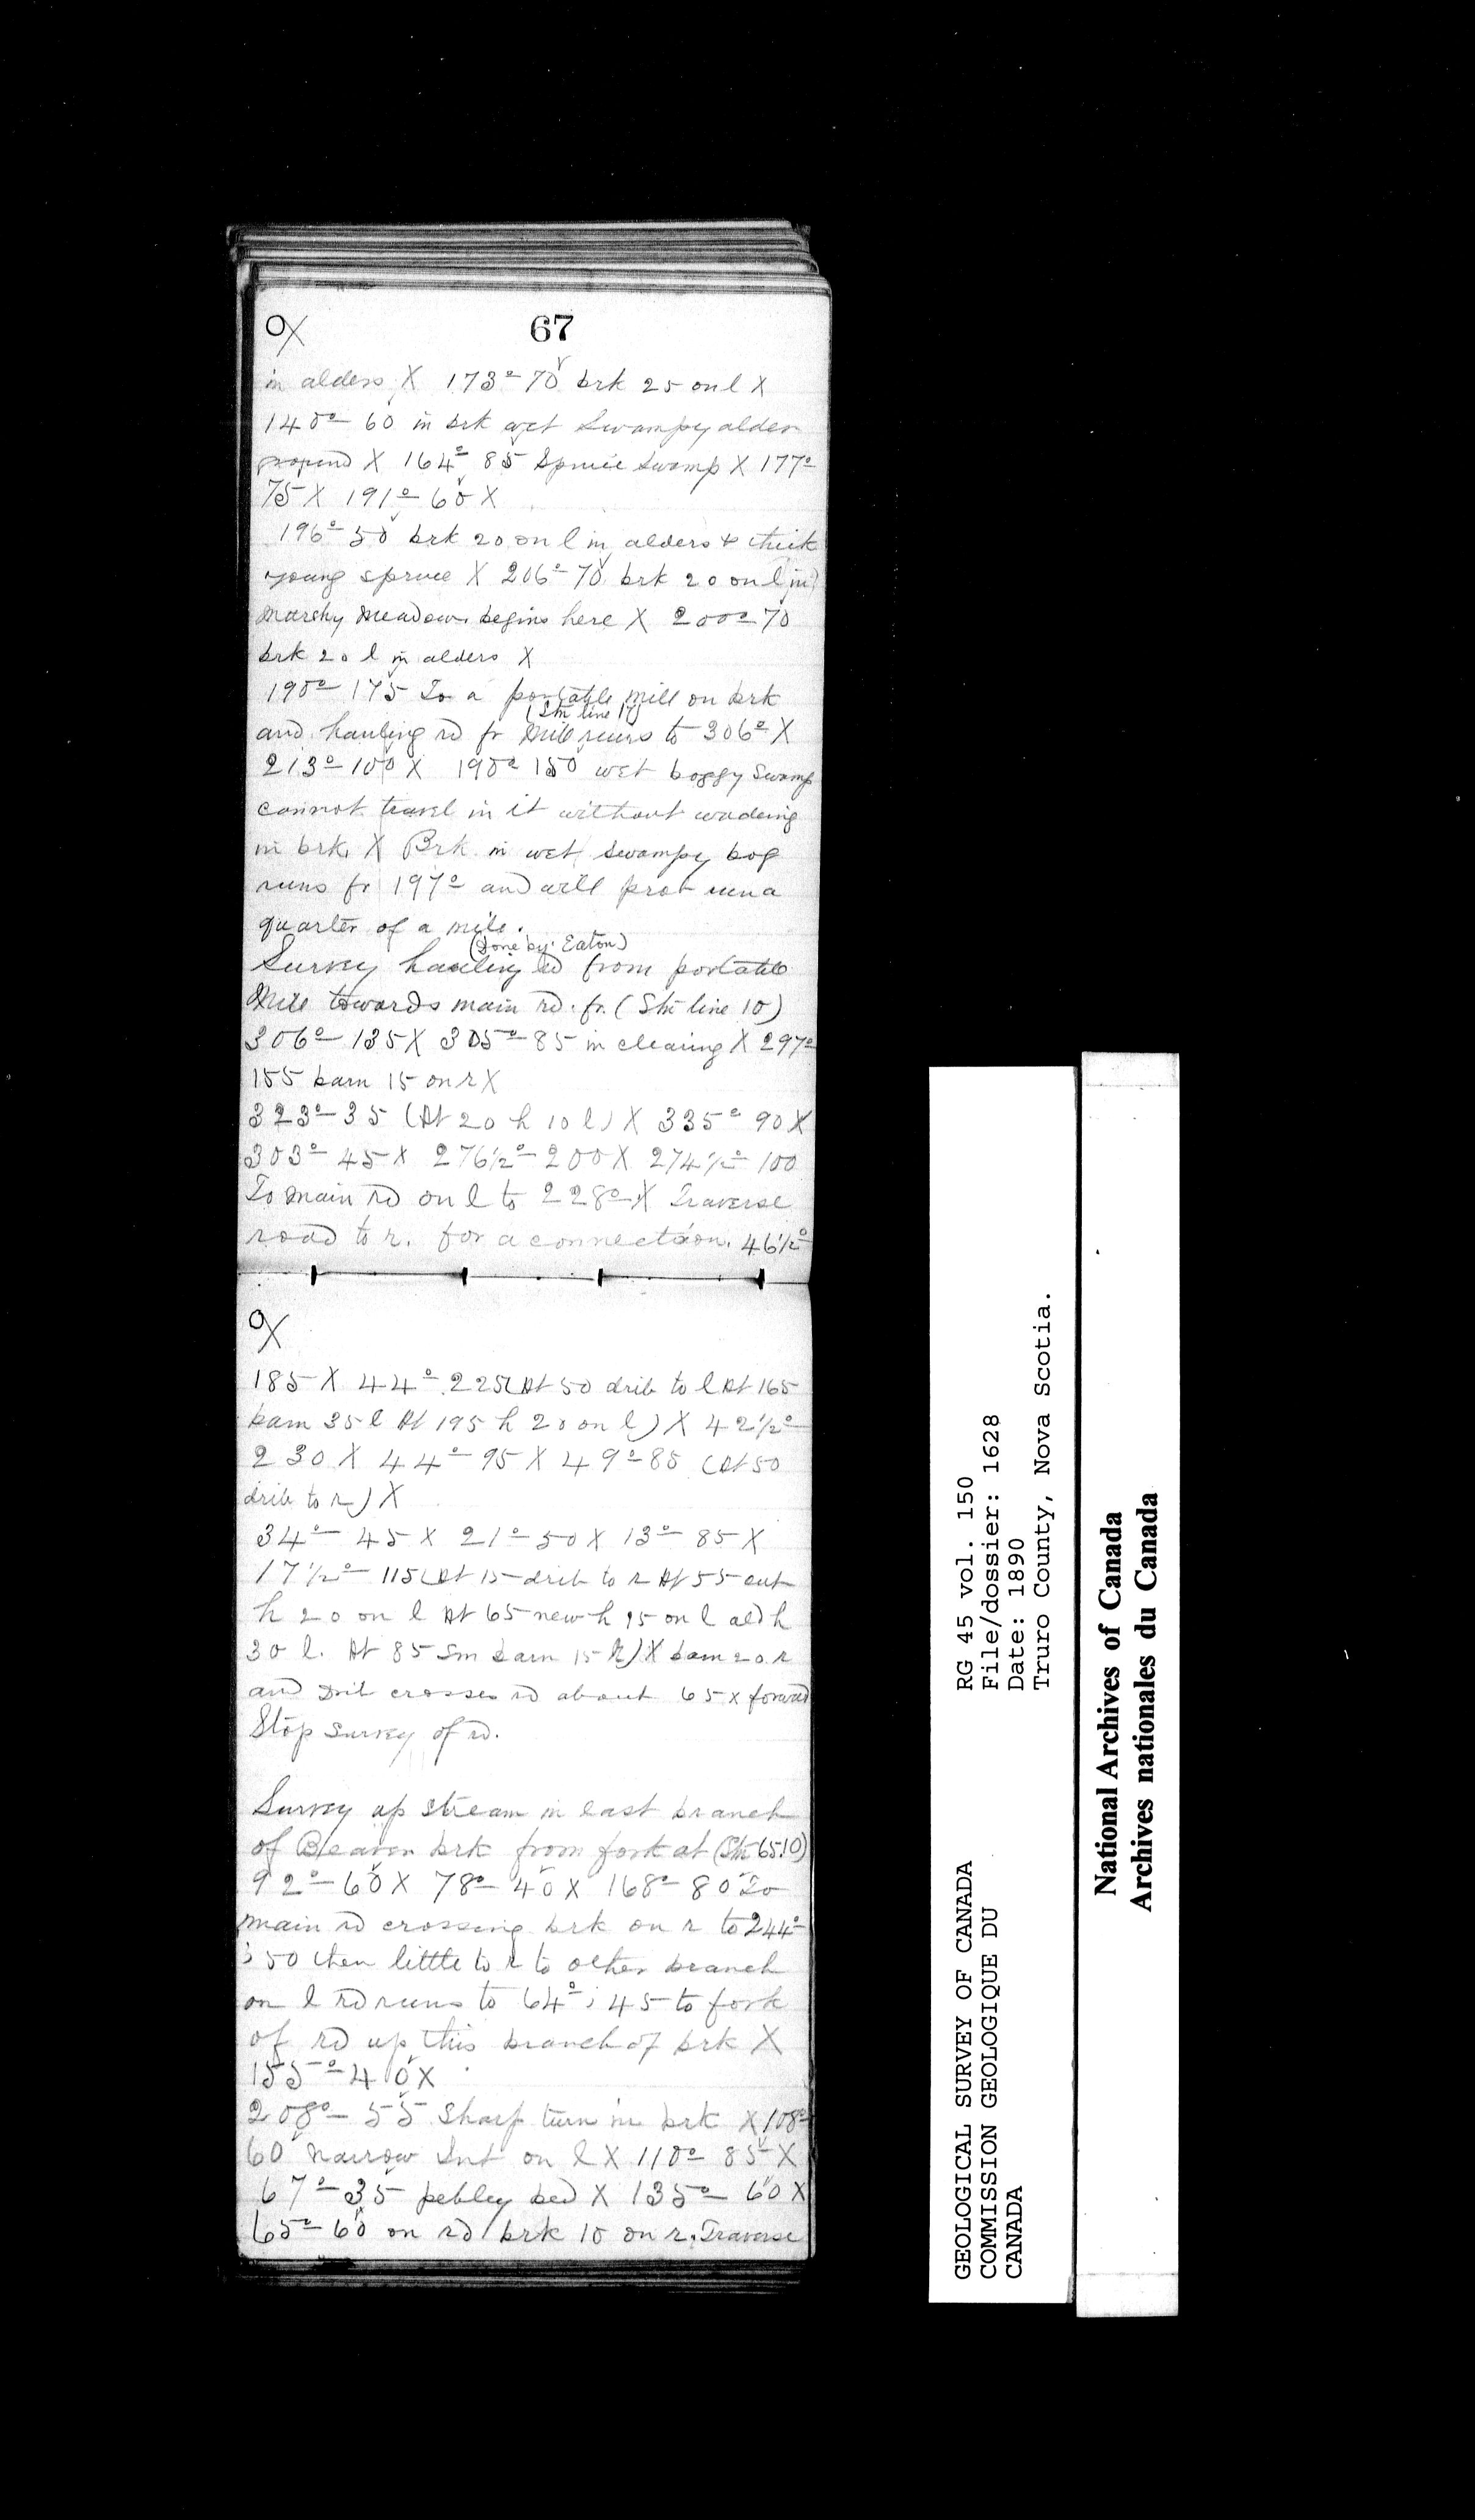 67
O/X
in alders X 173° 70 brk 25 on l X
140° 60 in brk wet swampy alder
X 164° 85 Spruce swamp X 177°
75 X 191° 60 X
196° 50 brk 20 on l in alders & thick
young spruce X 206° 70 brk 20 on l in
Marshy Meadow begins here X 200° 70
brk 20 l in alders X
190° 175 To a portable Mill on brk
(Stn line 10)
and hauling rd fr Mill runs to 306° X
213° 100 X 190° 150 wet boggy swamp
cannot travel in it without wadeing
in brk. X Brk in wet swampy bog
runs fr 197° and will prob run a
quarter of a mile.
(Done by Eaton)
Survey hauling rd from portable
Mill towards main rd. fr. (Stn line 10)
306° 135 X 305° 85 in clearing X 297°
155 barn 15 on r X
323° 35 (At 20 h 10 l) X 335° 90 X
303° 45 X 276½° 200 X 274½° 100
To Main rd on l to 228° X Traverse
road to r. for a connection. 46½°
O/X
185 X 44° 225 (At 50 drib to l At 165
barn 35 l At 195 h 20 on l) X 42½°
230 X 44° 95 X 49° 85 (At 50
drib to r) X
34° 45 X 21° 50 X 13° 85 X
17½° 115 (At 15 drib to r At 55 out
h 20 on l At 65 new h 15 on l old h
30 l. At 85 Sm barn 15 R) X barn 20 r
and drib crosses rd about 65 x forward
Stop survey of rd.
Survey up stream in east branch
of Beaver brk from fork at (Stn 65.10)
92° 60 X 78° 40 X 168° 80 To
main rd crossing brk on r to 244°
; 50 then little to r to other branch
on l rd runs to 64° ; 45 to fork
of rd up this branch of brk X
155° 40 X
208° 55 Sharp turn in brk X 108°
60 Narrow Int on l X 110° 85 X
67° 35 pebley bed X 135° 60 X
65° 60 on rd brk 10 on r. Traverse
GEOLOGICAL SURVEY OF CANADA
COMMISSION GEOLOGIQUE DU
CANADA
RG 45 vol. 150
File/dossier: 1628
Date: 1890
Truro County, Nova Scotia.
National Archives of Canada
Archives nationales du Canada